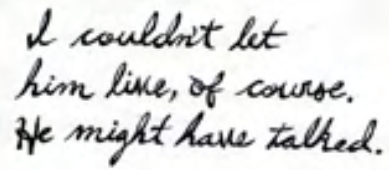 I couldn't let
him live, of course.
He might have talked.